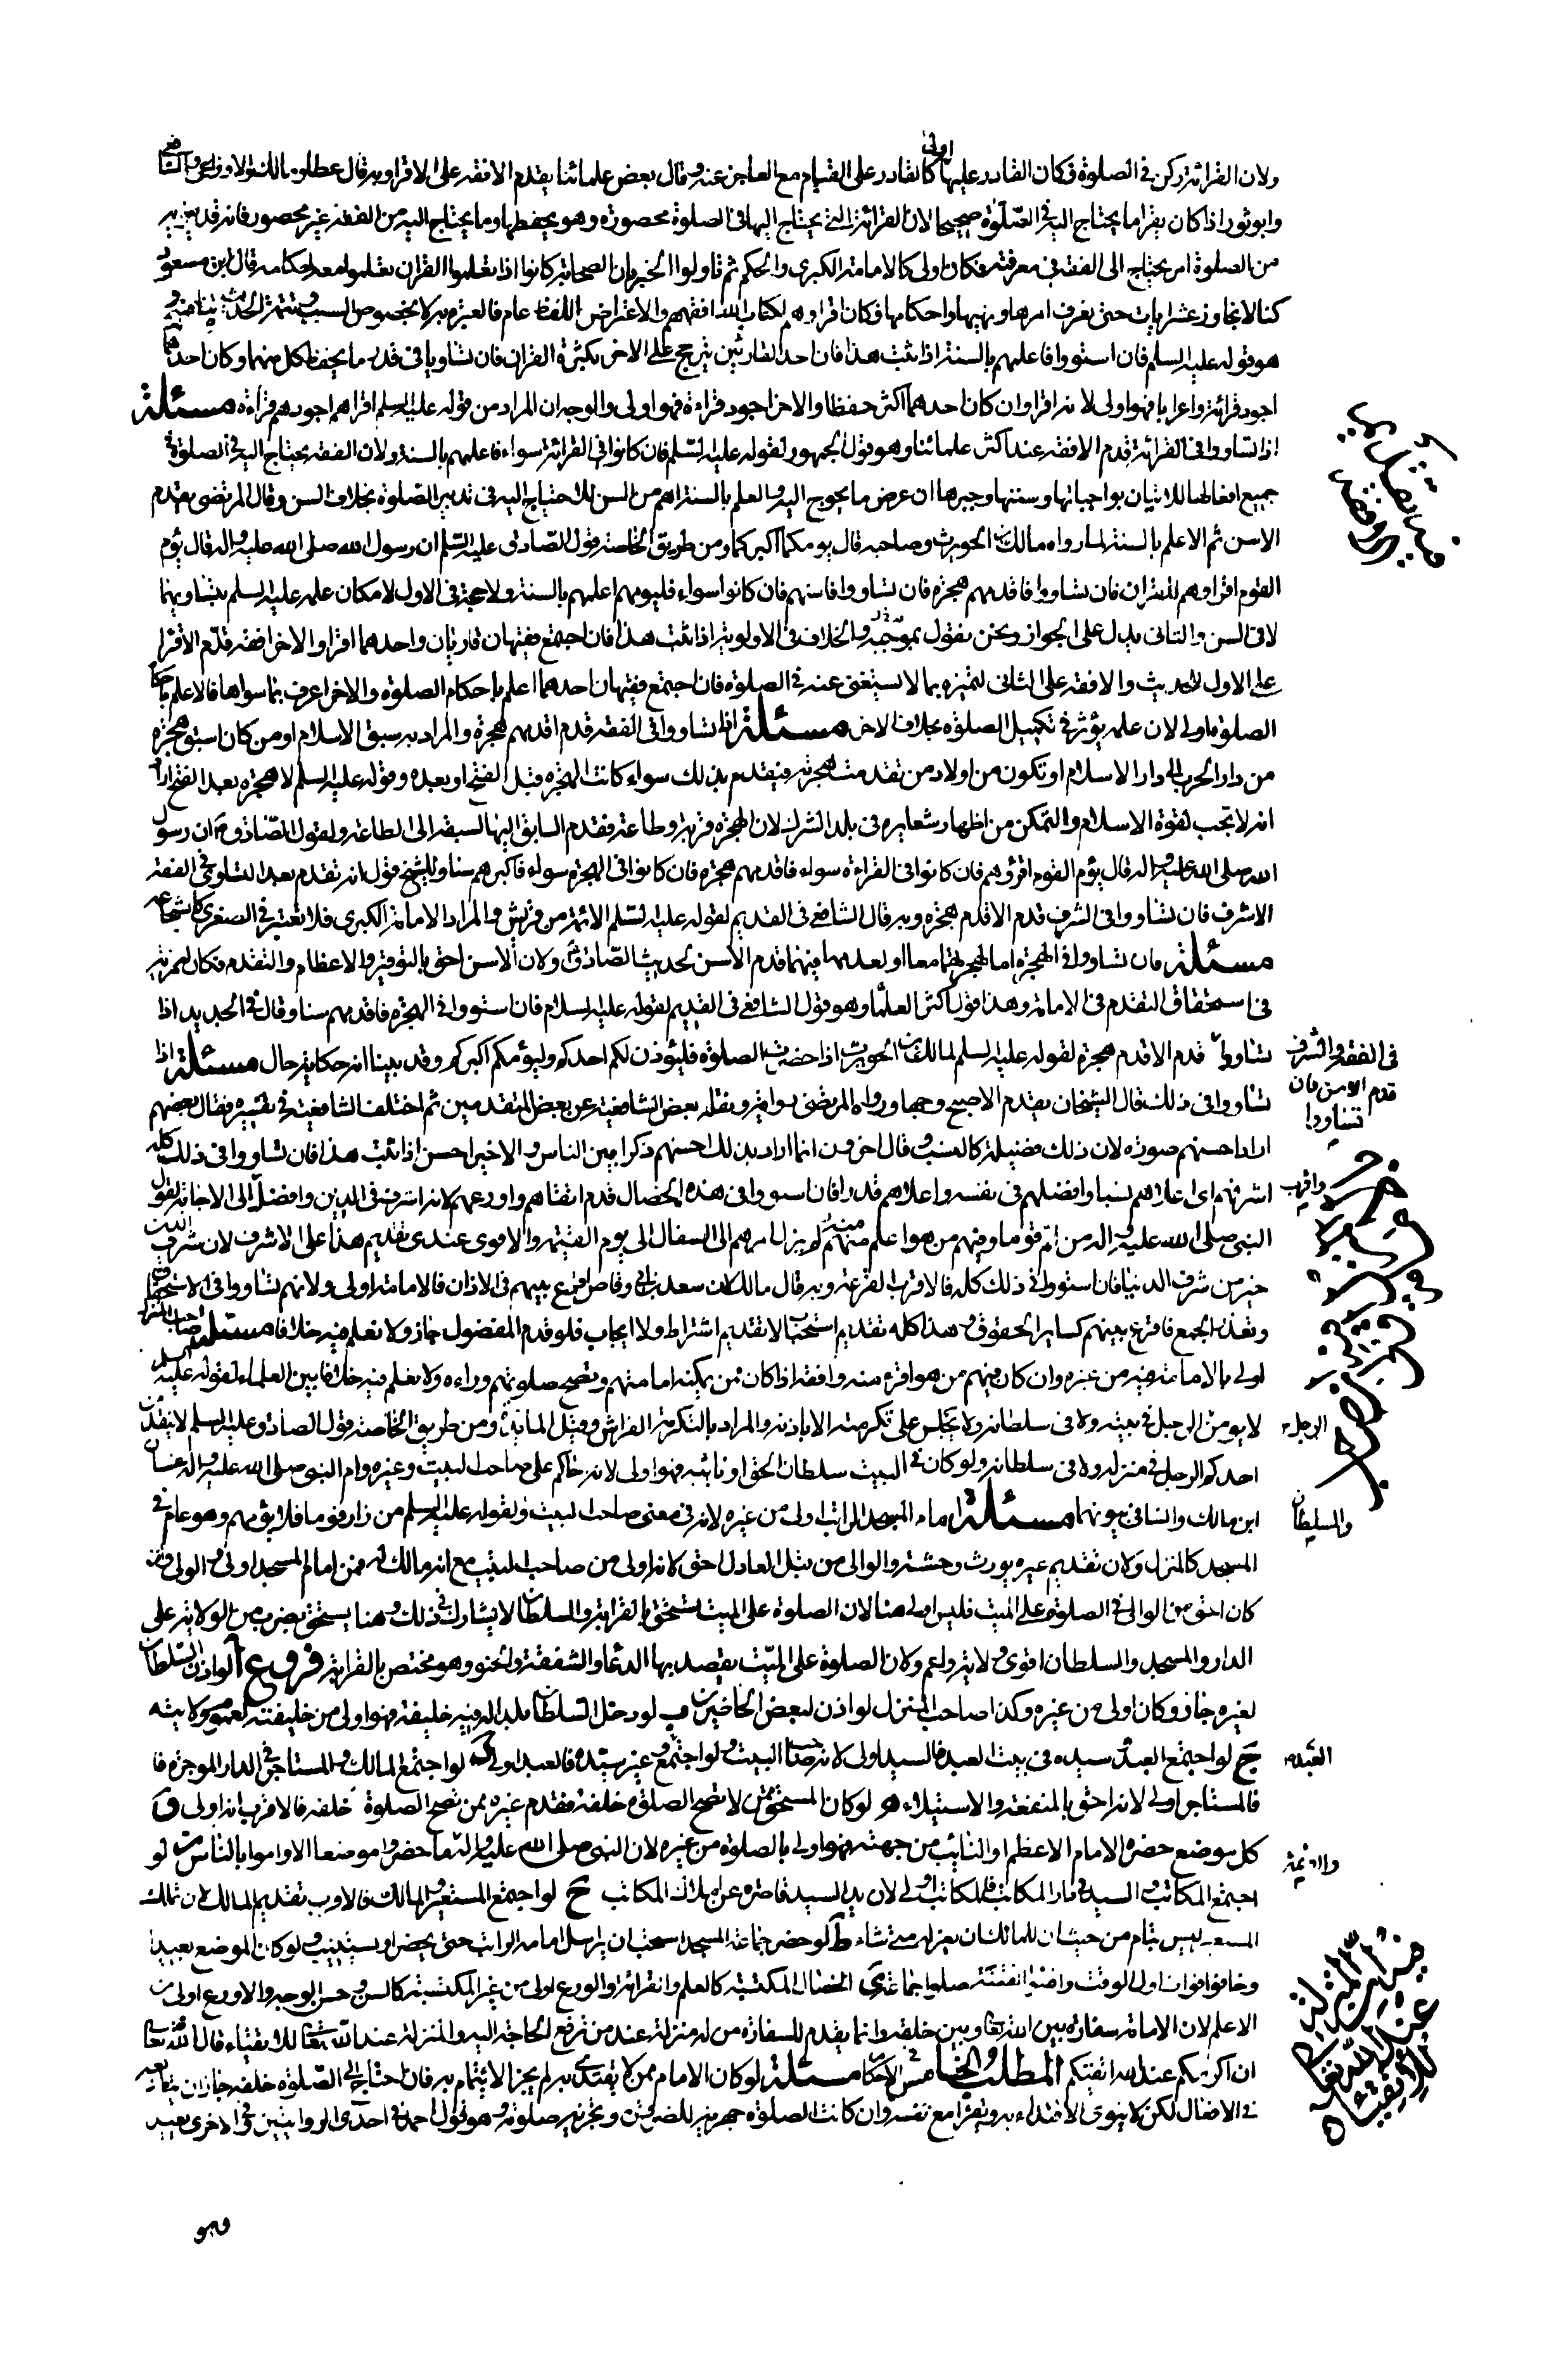 ولان القرائة ركن في الصلوة فكان القادر عليها اولى كالقادر على القيام مع العاجز عنه وقال بعض علمائنا يقدم الافقه على الاقرا وبه قال عطا ومالك والاوزاعي والشافعي
وابو ثور اذا كان يقرا ما يحتاج اليه في الصلوة صحيحا لان القرائة التي يحتاج اليها في الصلوة محصورة وهو يحفظها وما يحتاج اليه من الفقه غير محصور فانه قد ينوبه
من الصلوة امر يحتاج الى الفقه في معرفته فكان اولى كالامامة الكبرى والحكم ثم تاولوا الخبر بان الصحابة كانوا اذا تعلموا القران تعلموا معه احكامه قال ابن مسعود
كنا لا نجاوز عشر ايات حتى نعرف امرها ونهيها واحكامها فكان اقراوهم لكتاب الله افقههم والاعتراض اللفظ عام فالعبرة به لا بخصوص السبب وتتمة الحديث يناقضه و
هو قوله عليه السلم فان استووا فاعلمهم بالسنة اذا ثبت هذا فان احد القارئين يترجح على الاخر بكثرة القران فان تساويا في قدر ما يحفظ كل منهما وكان احدهما
اجود قرائة واعرابا فهو اولى لانه اقرا وان كان احدهما اكثر حفظا والاخر اجود قراءة فهو اولى والوجه ان المراد من قوله عليه السلم اقراهم اجودهم قراءة مسئلة
اذا تساووا في القرائة قدم الافقه عند اكثر علمائنا وهو قول الجمهور لقوله عليه السلم فان كانوا في القرائة سواء فاعلمهم بالسنة ولان الفقه يحتاج اليه في الصلوة في
جميع افعالها للاتيان بواجباتها وسننها وجبرها ان عرض ما يحوج اليه والعلم بالسنة اهم من السن للاحتياج اليه في تدبير الصلوة بخلاف السن وقال المرتضى يقدم
الاسن ثم الاعلم بالسنة لما رواه مالك بن الحويرث وصاحبه قال يؤمكما اكبركما ومن طريق الخاصة قول الصادق عليه السلم ان رسول الله صلى الله عليه واله قال يؤم
القوم اقراوهم للقران فان تساووا فاقدمهم هجرة فان تساووا فاسنهم فان كانوا سواء فليومهم اعلمهم بالسنة ولا حجة في الاول لامكان علمه عليه السلم بتساويهما
لا في السن والثاني يدل على الجواز ونحن نقول بموجبه والخلاف في الاولوية اذا ثبت هذا فان اجتمع فقيهان قاريان واحدهما اقرا والاخر افقه قدم الاقرا
على الاول للحديث والافقه على الثاني لتميزه بما لا يستغنى عنه في الصلوة فان اجتمع فقيهان احدهما اعلم باحكام الصلوة والاخر اعرف بما سواها فالاعلم باحكام
الصلوة اولى لان علمه يؤثر في تكميل الصلوة بخلاف الاخر مسئلة اذا تساووا في الفقه قدم اقدمهم هجرة والمراد به سبق الاسلام او من كان اسبق هجرة
من دار الحرب الى دار الاسلام او تكون من اولاد من تقدمت هجرته فيقدم بذلك سواء كانت الهجرة قبل الفتح او بعده وقوله عليه السلم لا هجرة بعد الفتح اراد
انه لا تجب لقوة الاسلام والتمكن من اظهار شعايره في بلد الشرك لان الهجرة قربة وطاعة فقدم السابق اليها لسبقه الى الطاعة ولقول الصادق ع ان رسول
الله صلى الله عليه واله قال يؤم القوم اقرؤهم فان كانوا في القراءة سواء فاقدمهم هجرة فان كانوا في الهجرة سواء فاكبرهم سنا وللشيخ قول انه تقدم بعد التساوي في الفقه
الاشرف فان تساووا في الشرف قدم الاقدم هجرة وبه قال الشافعي في القديم لقوله عليه السلم الائمة من قريش والمراد الامامة الكبرى فلا تعتبر في الصغرى كالشجاعة
مسئلة فان تساووا في الهجرة اما لهجرتهما معا او لعدمها فيهما قدم الاسن لحديث الصادق ع ولان الاسن احق بالتوقير والاعظام والتقدم فكان له مزية
في استحقاق التقدم في الامامة وهذا قول اكثر العلماء وهو قول الشافعي في القديم لقوله عليه السلام فان استووا في الهجرة فاقدمهم سنا وقال في الجديد اذا
تساووا قدم الاقدم هجرة لقوله عليه السلم لمالك بن الحويرث اذا حضرت الصلوة فليؤذن لكم احدكم وليؤمكم اكبركم وقد بينا انه حكاية حال مسئلة اذا
في الفقه والشرف
قدم الاسن فان
تساووا
تساووا في ذلك قال الشيخان يقدم الاصبح وجها ورواه المرتضى رواية ونقله بعض الشافعية عن بعض المتقدمين ثم اختلف الشافعية في تفسيره فقال بعضهم
اراد احسنهم صورة لان ذلك فضيلة كالنسب وقال اخرون انما اراد بذلك احسنهم ذكرا بين الناس والاخير احسن اذا ثبت هذا فان تساووا في ذلك كله
اشرفهم اي اعلاهم نسبا وافضلهم في نفسه واعلاهم قدرا فان استووا في هذه الخصال قدم اتقاهم واورعهم لانه اشرف في الدين وافضل واقرب الى الاجابة لقول
النبي صلى الله عليه واله من ام قوما وفيهم من هو اعلم منه لم يزل امرهم الى السفال الى يوم القيمة والاقوى عندي تقديم هذا على الاشرف لان شرف الدين
خير من شرف الدنيا فان استووا في ذلك كله فالاقرب القرعة وبه قال مالك لان سعد بن ابي وقاص اقرع بينهم في الاذان فالامامة اولى ولانهم تساووا في الاستحقاق
وتعذر الجمع فاقرع بينهم كساير الحقوق وهذا كله تقديم استحباب لا تقديم اشتراط ولا ايجاب فلو قدم المفضول جاز ولا نعلم فيه خلافا مسئلة صاحب المنزل
اولى بالامامة فيه من غيره وان كان فيهم من هو اقرء منه وافقه اذا كان ممن يمكنه امامتهم وتصح صلوتهم وراءه ولا نعلم فيه خلافا بين العلماء لقوله عليه السلم
لا يومن الرجل الرجل في بيته ولا في سلطانه ولا يجلس على تكرمته الا باذنه والمراد بالتكرمة الفراش وقيل المائدة ومن طريق الخاصة قول الصادق عليه السلم لا يتقدمن
احدكم الرجل في منزله ولا في سلطانه ولو كان في البيت سلطان الحق او نائبه فهو اولى لانه حاكم على صاحب البيت وغيره وام النبي صلى الله عليه واله عتبان
ابن مالك وانسا في بيوتهما مسئلة امام المسجد الراتب اولى من غيره لانه في معنى صاحب البيت ولقوله عليه السلم من زار قوما فلا يؤمهم وهو عام في
والسلطان
المسجد كالمنزل ولان تقديم غيره يورث وحشة والوالي من قبل العادل احق لانه اولى من صاحب البيت مع انه مالك له فمن امام المسجد اولى والولي وان
كان احق من الوالي في الصلوة على الميت فليس اولى هنا لان الصلوة على الميت تستحق بالقرابة والسلطان لا يشارك في ذلك وهنا يستحق بضرب من الولاية على
الدار والمسجد والسلطان اقوى ولاية واعم ولان الصلوة على الميت يقصد بها الدعاء والشفقة والحنو وهو مختص بالقرابة فروع آ لو اذن السلطان
لغيره جاز وكان اولى من غيره وكذا صاحب المنزل لو اذن لبعض الحاضرين ب لو دخل السلطان بلدا له فيه خليفة فهو اولى من خليفته لعموم ولايته
ج لو اجتمع العبد وسيده في بيت العبد فالسيد اولى لانه صاحب البيت ولو اجتمع العبد وغير سيده فالعبد اولى د لو اجتمع المالك والمستاجر في الدار الموجرة فا
فالمستاجر اولى لانه احق بالمنفعة والاستيلاء ه لو كان المستحق ممن لا تصح الصلوة خلفه فقدم غيره ممن تصح الصلوة خلفه فالاقرب انه اولى و
كل موضع حضره الامام الاعظم او النائب من جهته فهو اولى بالصلوة من غيره لان النبي صلى الله عليه واله والائمة ما حضروا موضعا الا واموا بالناس ز لو
اجتمع المكاتب والسيد في دار المكاتب فالمكاتب اولى لان يد السيد قاصرة عن املاك المكاتب ح لو اجتمع المستعير والمالك فالاقرب تقديم المالك لان تملك
المستعير ليس بتام من حيث ان للمالك ان يعزله متى شاء ط لو حضر جماعة المسجد استحب ان يراسل امامه الراتب حتى يحضر او يستنيب ولو كان الموضع بعيدا
وخافوا فوات اولى الوقت وامنوا الفتنة صلوا جماعة ى الخصال المكتسبة كالعلم والقرائة والورع اولى من غير المكتسبة كالسن وحسن الوجه والاورع اولى من
الاعلم لان الامامة سفارة بين الله تعا وبين خلقه وانما يقدم للسفارة من له منزلة عند من ترفع الحاجة اليه والمنزلة عند الله تعا للاتقياء قال الله تعا
ان اكرمكم عند الله اتقيكم المطلب الخامس في الاحكام مسئلة لو كان الامام ممن لا يقتدى به لم يجز الائتمام به فان احتاج الى الصلوة خلفه جاز ان يتابعه
في الافعال لكن لا ينوي الاقتداء به ويقرا مع نفسه وان كانت الصلوة جهرية للضرورة وتجزيه صلوته وهو قول احمد في احدى الروايتين وفي الاخرى يعيد
وهو